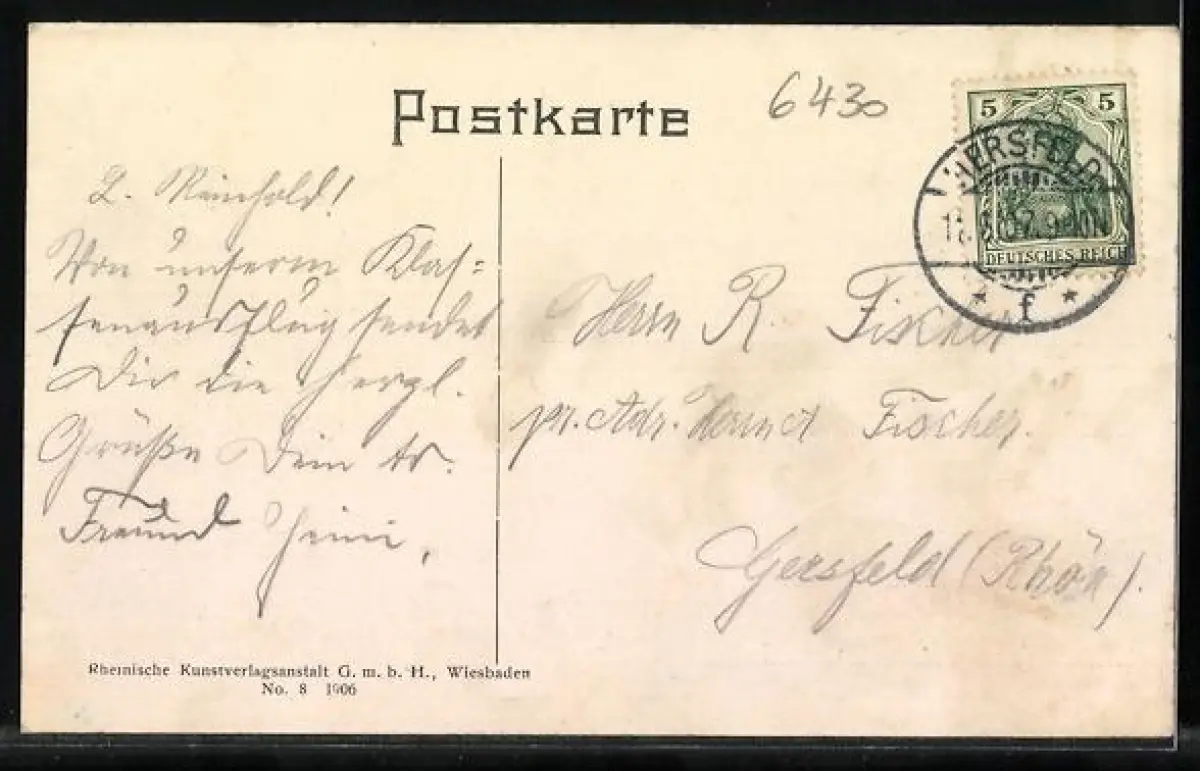 Postkarte
6430
5 5
HERSFELD
DEUTSCHES REICH
* f *
L. Reinhold!
Von unserm Klas=
senausflug sendet
Dir die herzl.
Grüße Dein tr.
Freund Heini.
Herrn R. Fischer
pr. Adr. Fischer.
Gersfeld (Rhön).
Rheinische Kunstverlagsanstalt G. m. b. H., Wiesbaden
No. 8 1906